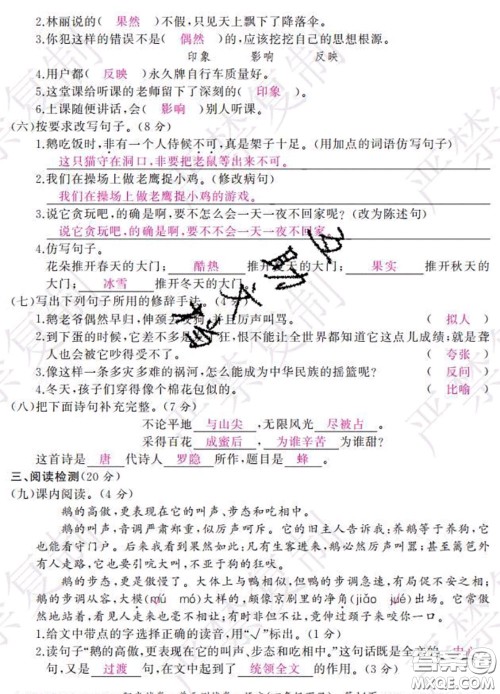 2.林丽说的(果然)不假,只见天上飘下了降落伞。
3.你犯这样的错误不是(偶然)的,应该挖挖自己的思想根源。
印象 影响 反映
4.用户都(反映)永久牌自行车质量好。
5.这堂课给听课的老师留下了深刻的(印象)。
6.上课随便讲话,会(影响)别人听课。
(六)按要求改写句子。(8分)
1.鹅吃饭时,非有一个人侍候不可,真是架子十足。(用加点的词语仿写句子)
这只猫守在洞口,非要把老鼠等出来不可。
2.我们在操场上做老鹰捉小鸡。(修改病句)
我们在操场上做老鹰捉小鸡的游戏。
3.说它贪玩吧,的确是啊,要不怎么会一天一夜不回家呢?(改为陈述句)
说它贪玩吧,的确是啊,要不然不会一天一夜不回家。
4.仿写句子。
花朵推开春天的大门;酷热推开夏天的大门;果实推开秋天的
大门;冰雪推开冬天的大门。
(七)写出下列句子所用的修辞手法。(4分)
1.鹅老爷偶然早归,伸颈去咬狗,并且厉声叫骂。(拟人)
2.到下蛋的时候,它差不多是发了狂,恨不能让全世界都知道它这点儿成绩;就是聋
人也会被它吵得受不了。(夸张)
3.像这样一条多灾多难的祸河,怎么能成为中华民族的摇篮呢?(反问)
4.冬天,孩子们穿得像个棉花包似的。(比喻)
(八)把下面诗句补充完整。(7分)
不论平地与山尖,无限风光尽被占。
采得百花成蜜后,为谁辛苦为谁甜?
这首诗是唐代诗人罗隐所作,题目是蜂。
三、阅读检测(20分)
(九)课内阅读。(4分)
鹅的高傲,更表现在它的叫声、步态和吃相中。
鹅的叫声,音调严肃郑重,似厉声呵斥。它的旧主人告诉我:养鹅等于养狗,它
也能看守门户。后来我看到果然如此:凡有生客进来,鹅必然厉声叫嚣;甚至篱笆外
有人走路,它也要引吭大叫,不亚于狗的狂吠。
鹅的步态,更是傲慢了。大体上与鸭相似,但鸭的步调急速,有局促不安之相;鹅
的步调从容,大模(mú mó)大样的,颇像京剧里的净角(jiǎo jué)出场。它常傲
然地站着,看见人走来也毫不相让;有时非但不让,竟伸过颈子来咬你一口。
1.给文中带点的字选择正确的读音,用“√”标出。(1分)
2.读句子“鹅的高傲,更表现在它的叫声、步态和吃相中。”这句话既是全文的中心
句,又是过渡句,在文中起到了统领全文的作用。
严禁复制